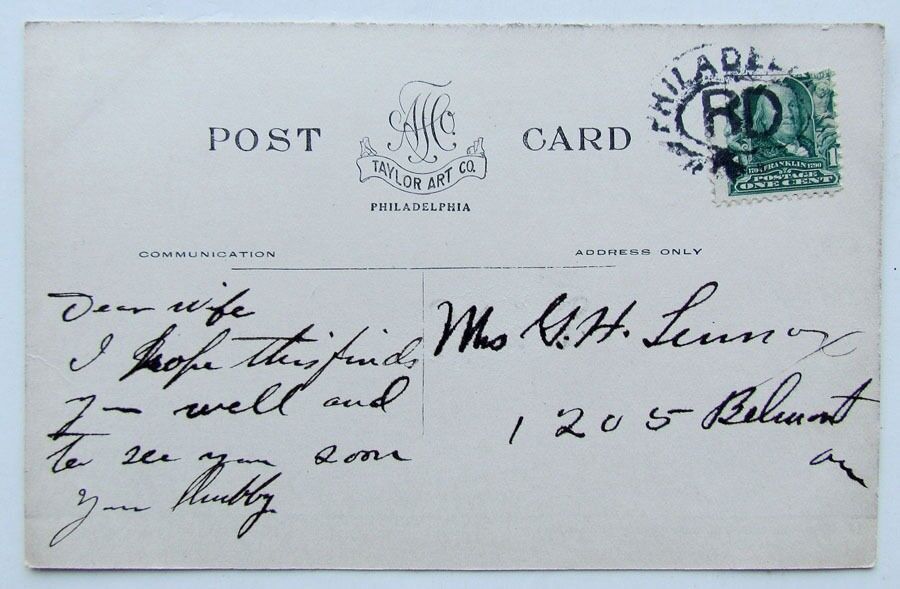 POST CARD
TAYLOR ART CO.
PHILADELPHIA
PHILADEL
RD
FRANKLIN
POSTAGE
ONE CENT
1
COMMUNICATION
ADDRESS ONLY
Dear Wife
I hope this finds
you well and
to see you soon
your Chubby
Mrs G. H. Lennox
1205 Belmont
av